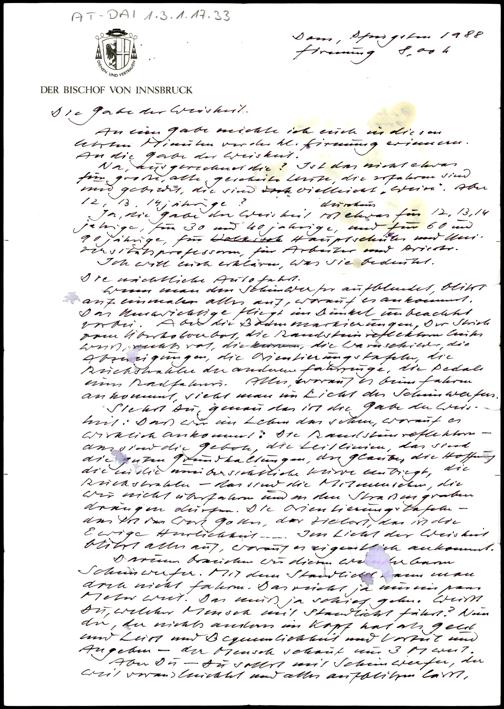 AT-DAI 1.3.1.17.33
Dom, Pfingsten 1988
Firmung 8,00 h
DIENEN UND VERTRAUEN
DER BISCHOF VON INNSBRUCK
Die Gabe der Weisheit.
An eine Gabe möchte ich euch in diesen
letzten Minuten vor der hl. Firmung erinnern.
An die Gabe der Weisheit.
Na, ausgerechnet die? Ist das nicht etwas
für große, alte, gescheite Leute, die erfahren sind
und gebildet, die sind doch vielleicht "weise". Aber
12, 13, 14jährige?
Ja, die Gabe der Weisheit ist durchaus etwas für 12, 13, 14
jährige, für 30 und 40jährige, und für 60 und
90jährige, für Hauptschüler und Uni-
versitätsprofessoren, für Arbeiter und
Ich will euch erklären, was sie bedeutet.
Die nächtliche Autofahrt.
Wenn man den Scheinwerfer aufblendet, blitzt
auf einmal alles auf, worauf es ankommt.
Das Unwichtige fliegt im Dunkel unbeachtet
vorbei. Aber die Bodenmarkierungen, der Strich
vom Überholverbot, die Randstreifenreflektoren links
weiß, rechts rot, die Kurven, die Warnschilder, die
Abzweigungen, die Orientierungstafeln, die
Rückstrahler der anderen Fahrzeuge, die Pedale
eines Radfahrers. Alles, worauf es beim Fahren
ankommt, sieht man im Licht des Scheinwerfers.
Siehst Du, genau das ist die Gabe der Weis-
heit: Daß wir im Leben das sehen, worauf es
wirklich ankommt: Die Randstreifenreflektoren -
das sind die Gebote, die Leitlinien, das sind
die guten Grundhaltungen, der Glaube, die Hoffnung
die in die unübersichtliche Kurve einbiegt, die
Rückstrahler - das sind die Mitmenschen, die
wir nicht überfahren und in den Straßengraben
drängen dürfen. Die Orientierungstafeln -
das ist das Wort Gottes, das ist die
Ewige Herrlichkeit .... Im Licht der Weisheit
blitzt alles auf, worauf es eigentlich ankommt.
Darum brauchen wir diesen wunderbaren
Scheinwerfer. Mit dem Standlicht kann man
doch nicht fahren. Das reicht ja nur ein paar
Meter weit. Das muß ja schief gehn. Weißt
Du, welcher Mensch mit Standlicht fährt? Nun
der, der nichts anders im Kopf hat als Geld
und Lust und Bequemlichkeit und Vorteil und
Angeben - der Mensch schaut nur 3 m weit.
Aber Du - Du sollst mit Scheinwerfer, der
weit vorausleuchtet und alles aufblitzen lässt,